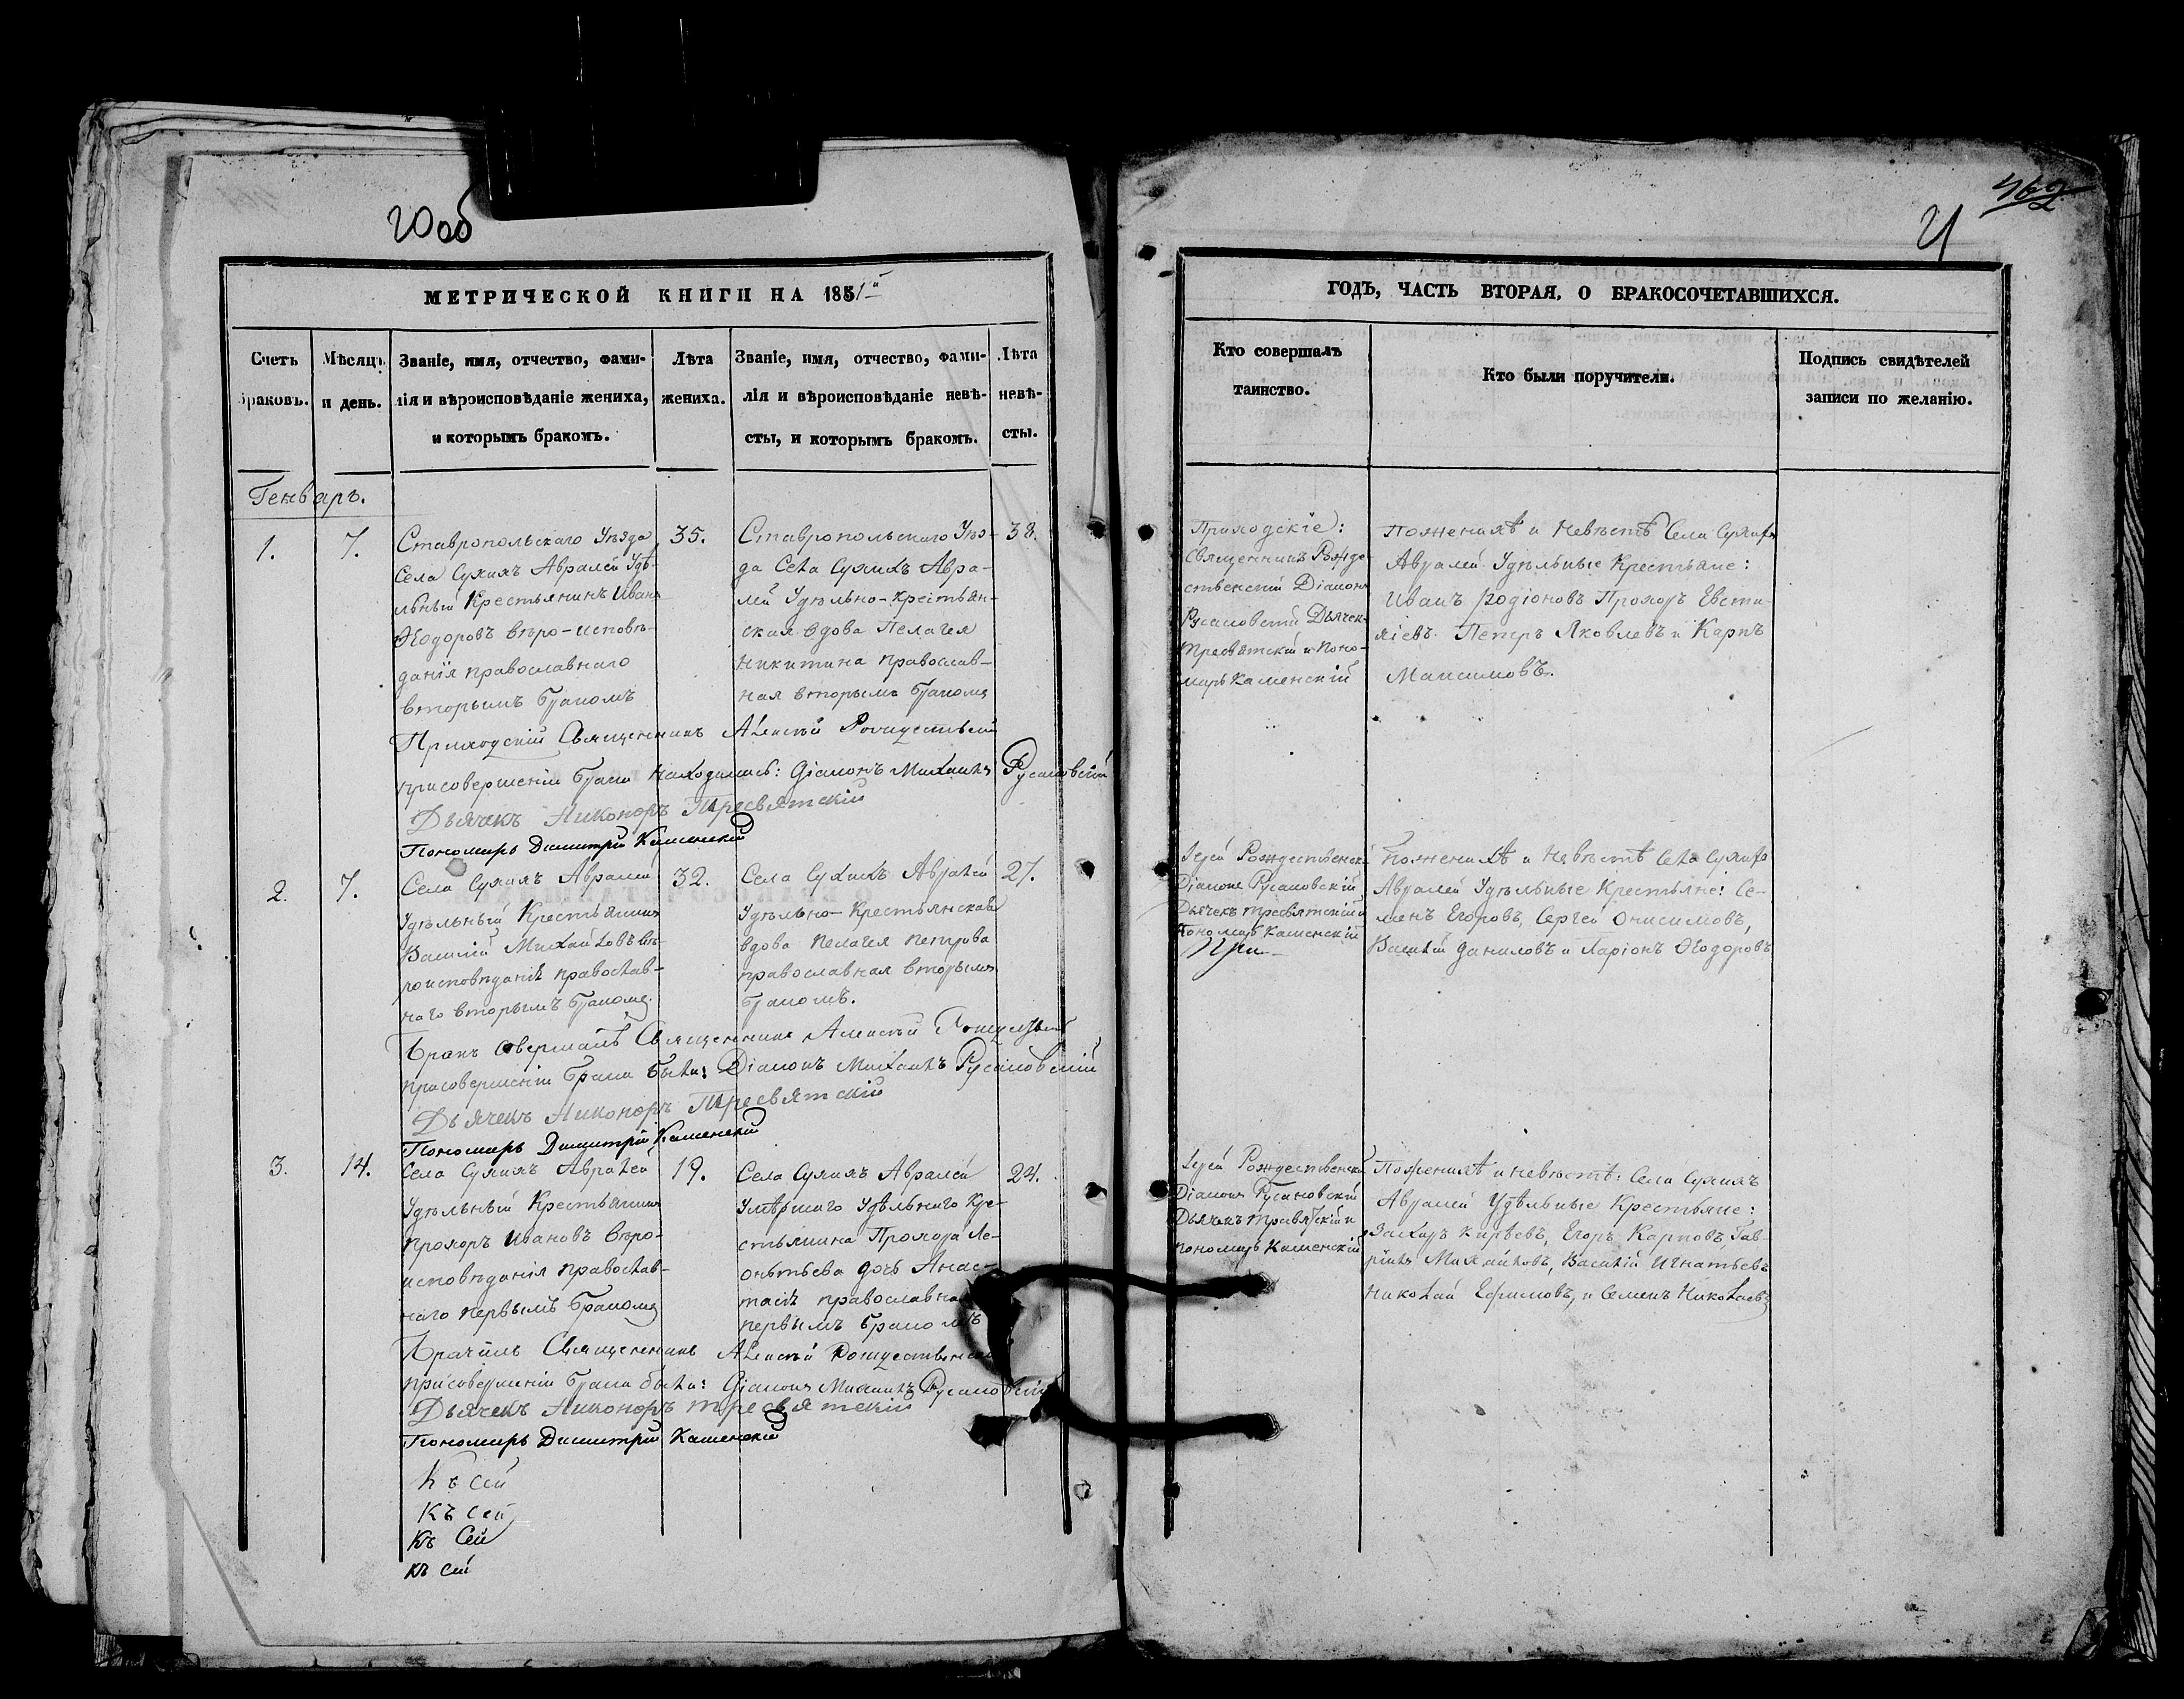 20об
462
21
МЕТРИЧЕСКОЙ КНИГИ НА 1851й
ГОДЪ, ЧАСТЬ ВТОРАЯ, О БРАКОСОЧЕТАВШИХСЯ.
Счетъ браковъ.
Мѣсяцъ и день.
Званіе, имя, отчество, фами-
лія и вѣроисповѣданіе жениха,
и которымъ бракомъ.
Лѣта
жениха.
Званіе, имя, отчество, фами-
лія и вѣроисповѣданіе невѣ-
сты, и которымъ бракомъ.
Лѣта
невѣ-
сты.
Кто совершалъ
таинство.
Кто были поручители.
Подпись свидѣтелей
записи по желанію.
Генварь.
1.
7.
Ставропольскаго Уѣзда
Села Сухихъ Авралей Удѣ-
льный Крестьянинъ Иванъ
Ѳеодоровъ вѣро-исповѣ-
данія православнаго
вторымъ бракомъ
35.
Ставропольскаго Уѣз-
да Села Сухихъ Авра-
лей Удѣльно-крестьян-
ская вдова Пелагея
Никитина православ-
ная вторымъ бракомъ
38.
Приходскіе:
Священникъ Рожде-
ственскій Діаконъ
Русановскій Дьячек
Тресвятскій и Поно-
марь Каменскій
Поженихѣ и Невѣстѣ Села Сухихъ
Авралей Удѣльные Крестьяне:
Иванъ Родіоновъ Прохоръ Евсти-
хіевъ Петръ Яковлевъ и Карпъ
Максимовъ.
Приходскій Священникъ Алексѣй Рождественскій
присовершеніи брака находились: Діаконъ Михаилъ Русановскій
Дьячекъ Никоноръ Тресвятскій
Пономарь Димитрій Каменскій
2.
7.
Села Сухихъ Авралей
Удѣльный Крестьянинъ
Василій Михайловъ вѣ-
роисповѣданія православ-
наго вторымъ бракомъ.
32.
Села Сухихъ Авралей
Удѣльно-Крестьянская
вдова Пелагея Петрова
православная вторымъ
бракомъ.
27.
Іерей Рождественскі
Діаконъ Русановскій
Дьячекъ Тресвятскій и
Пономарь Каменскій
При
Поженихѣ и Невѣстѣ Села Сухихъ
Авралей Удѣльные Крестьяне: Се-
менъ Егоровъ, Сергей Онисимовъ,
Василій Даниловъ и Ларіонъ Ѳеодоровъ
Бракъ совершалъ Священникъ Алексѣй Рождествен
присовершеніи брака были: Діаконъ Михаилъ Русановскій
Дьячекъ Никоноръ Тресвятскій
Пономарь Димитрій Каменскій
3.
14.
Села Сухихъ Авралей
Удѣльный Крестьянинъ
Прохоръ Ивановъ вѣро-
исповѣданія православ-
наго первымъ бракомъ
19.
Села Сухихъ Авралей
Умершаго Удѣльнаго Кре-
стьянина Прохора Ле-
онтьева дочь Анас-
тасія православная
первымъ бракомъ
24.
Іерей Рождественскі
Діаконъ Русановскій
Дьячекъ Тресвятскій и
пономарь Каменскій
Поженихѣ и невѣстѣ: Села Сухихъ
Авралей Удѣльные Крестьяне:
Захаръ Кирѣевъ, Егоръ Карповъ, Гав-
рiилъ Михайловъ, Василій Игнатьевъ
Николай Ефимовъ, и Семенъ Николаевъ
Брачилъ Священникъ Алексѣй Рождественскій
присовершеніи брака были: Діаконъ Михаилъ Русановскій
Дьячекъ Никоноръ Тресвятскій
Пономарь Димитрій Каменскій
Къ сей
Къ сей
Къ Сей
Къ сей